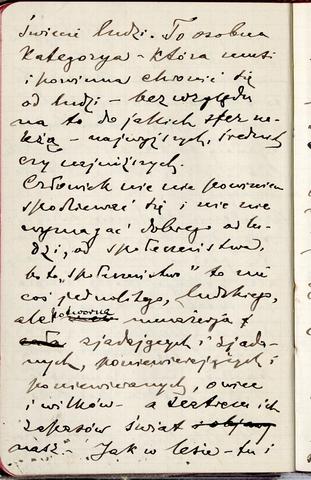 świecie ludzi. To osobna
kategorya – która musi
i powinna chronić się
od ludzi – bez względu
na to do jakich sfer na-
leżą – najwyższych, średnich
czy najniższych.
Człowiek nic nie powinien
spodziewać się i nic nie
wymagać dobrego od lu-
dzi, od społeczeństwa,
bo to „społeczeństwo" to nie
coś jednolitego, ludzkiego,
ale potworna menażerja z
zjadających i zjada-
nych, poniewierających i
poniewieranych, owiec
i wilków – a zestrem ich
zapasów świat
nasz. Jak w lesie – tu i